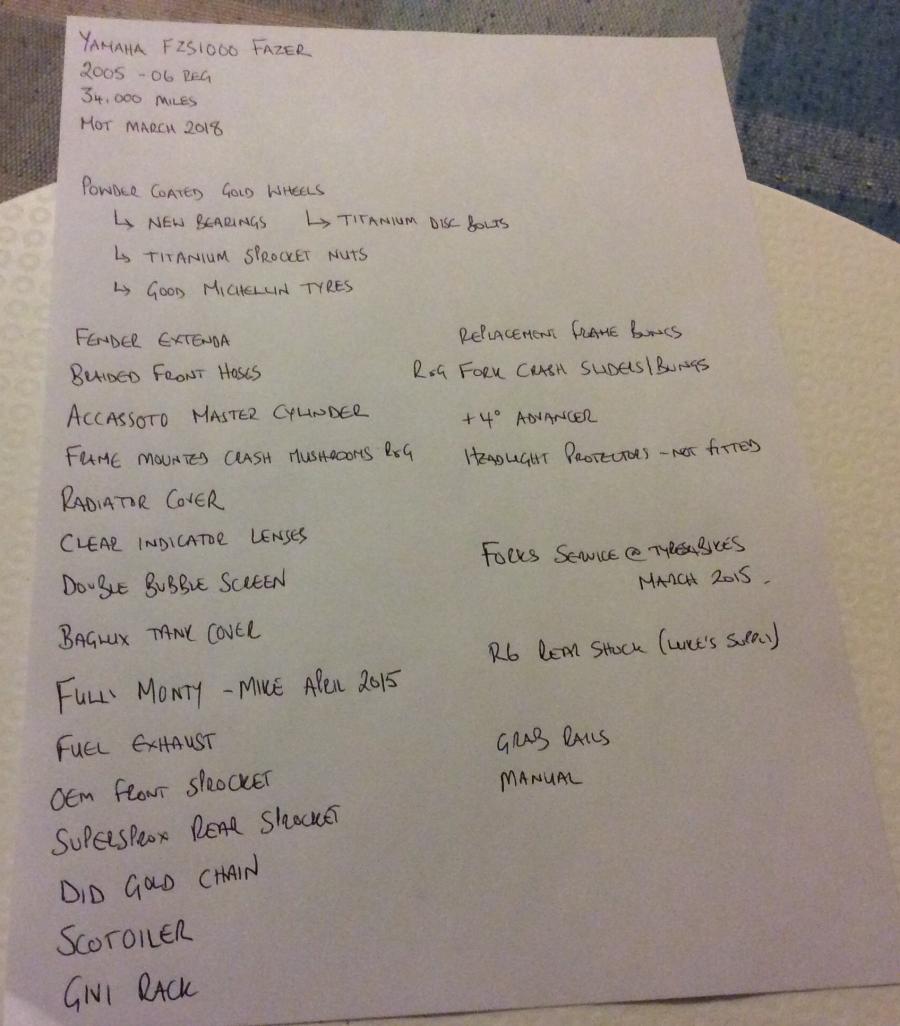 YAMAHA FZS1000 FAZER
2005 - 06 REG
34,000 MILES
MOT MARCH 2018
POWDER COATED GOLD WHEELS
↳ NEW BEARINGS ↳ TITANIUM DISC BOLTS
↳ TITANIUM SPROCKET NUTS
↳ GOOD MICHELLIN TYRES
FENDER EXTENDA
BRAIDED FRONT HOSES
ACCASSOTO MASTER CYLINDER
FRAME MOUNTED CRASH MUSHROOMS R&G
RADIATOR COVER
CLEAR INDICATOR LENSES
DOUBLE BUBBLE SCREEN
BAGLUX TANK COVER
FULL MONTY - MIKE APRIL 2015
FUEL EXHAUST
OEM FRONT SPROCKET
SUPERSPROX REAR SPROCKET
DID GOLD CHAIN
SCOTOILER
GIVI RACK
REPLACEMENT FRAME BUNGS
R&G FORK CRASH SLIDERS/BUNGS
+4° ADVANCER
HEADLIGHT PROTECTORS - NOT FITTED
FORKS SERVICE @ TYRES4BIKES
MARCH 2015.
R6 REAR SHOCK (LUKE'S SUPPLY)
GRAB RAILS
MANUAL